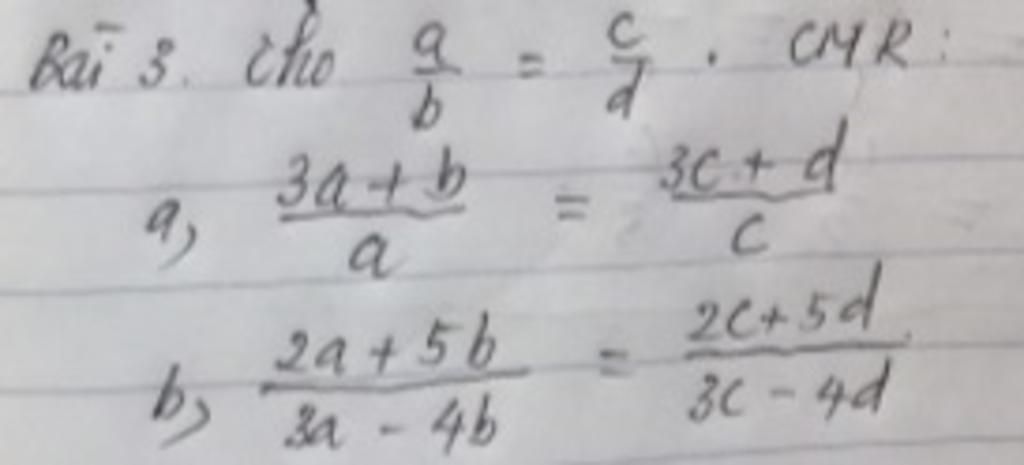 Bài 3. Cho a/b = c/d . CMR:
a, (3a + b)/a = (3c + d)/c
b, (2a + 5b)/(3a - 4b) = (2c + 5d)/(3c - 4d)